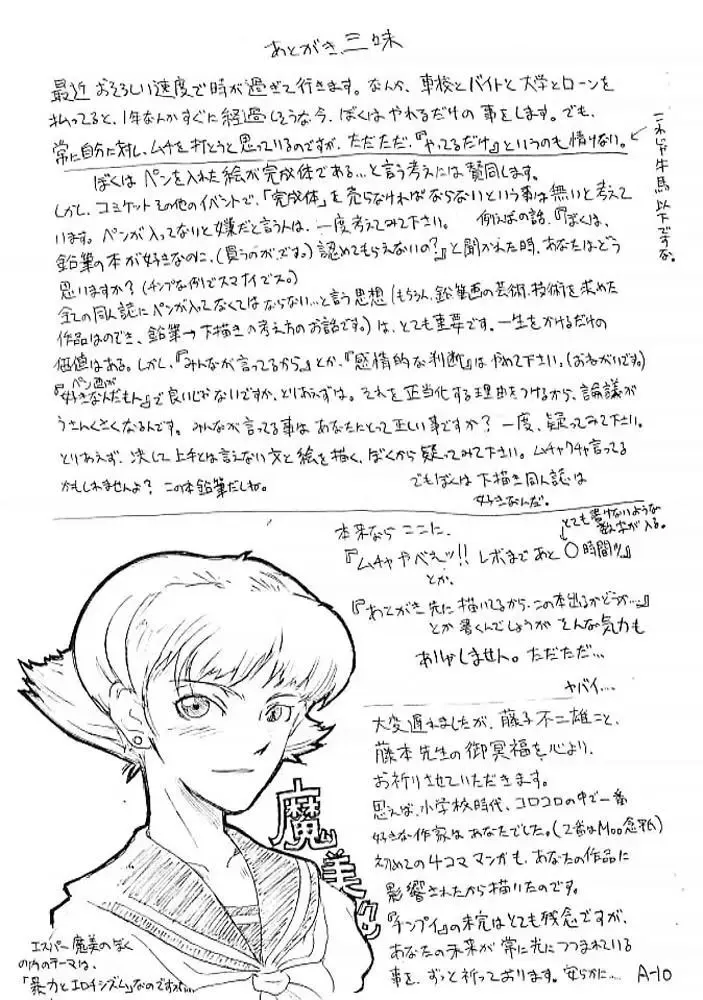 あとがき三昧
最近おそろしい速度で時が過ぎて行きます。なんか、車校とバイトと大学とローンを
払ってると、1年なんかすぐに経過しそうな今、ぼくはやれるだけの事をします。でも、
常に自分に対し、ムチを打とうと思っているのですが、ただただ、『やってるだけ』というのも情けない。
これじゃ牛馬以下ですな。
ぼくはペンを入れた絵が完成体である…と言う考えには賛同します。
しかし、コミケットその他のイベントで、「完成体」を売らなければならないという事は無いと考えて
います。ペンが入ってないと嫌だと言う人は、一度考えてみて下さい。例えばの話、『ぼくは、
鉛筆の本が好きなのに、(買うのが、です。)認めてもらえないの?』と聞かれた時、あなたはどう
思いますか?(チンプな例でスマナイでス。)
全ての同人誌にペンが入ってなくてはならない…と言う思想(もちろん、鉛筆画の芸術、技術を求めた
作品はのぞき、鉛筆→下描きの考え方のお話です。)は、とても重要です。一生をかけるだけの
価値はある。しかし、『みんなが言ってるから』とか、『感情的な判断』はやめて下さい。(おねがいです。)
『ペン画が好きなんだもん』で良いじゃないですか、とりあえずは。それを正当化する理由をつけるから、論議が
うさんくさくなるんです。みんなが言ってる事はあなたにとって正しい事ですか?一度、疑ってみて下さい。
とりあえず、決して上手とは言えない文と絵を描く、ぼくから疑ってみて下さい。ムチャクチャ言ってる
かもしれませんよ?この本鉛筆だしね。
でもぼくは下描き同人誌は
好きなんだ。
本来ならここに、
とても書けないような
数字が入る。
『ムチャやべえッ!!レボまであと〇時間!!』
とか、
『あとがき先に描いてるから、この本出るかどうか…。』
とか書くんでしょうがそんな気力も
ありゃしません。ただただ…
ヤバイ…。
大変遅れましたが、藤子不二雄こと、
藤本先生の御冥福を心より、
お祈りさせていただきます。
思えば、小学校時代、コロコロの中で一番
好きな作家はあなたでした。(2番はMoo念平)
初めての4コママンガも、あなたの作品に
影響されたから描いたのです。
『チンプイ』の未完はとても残念ですが、
あなたの未来が常に光につつまれている
事を、ずっと祈っております。安らかに…
A-10
魔美クン
エスパー魔美のぼく
の内のテーマは、
「暴力とエロイシズム」なのですが…